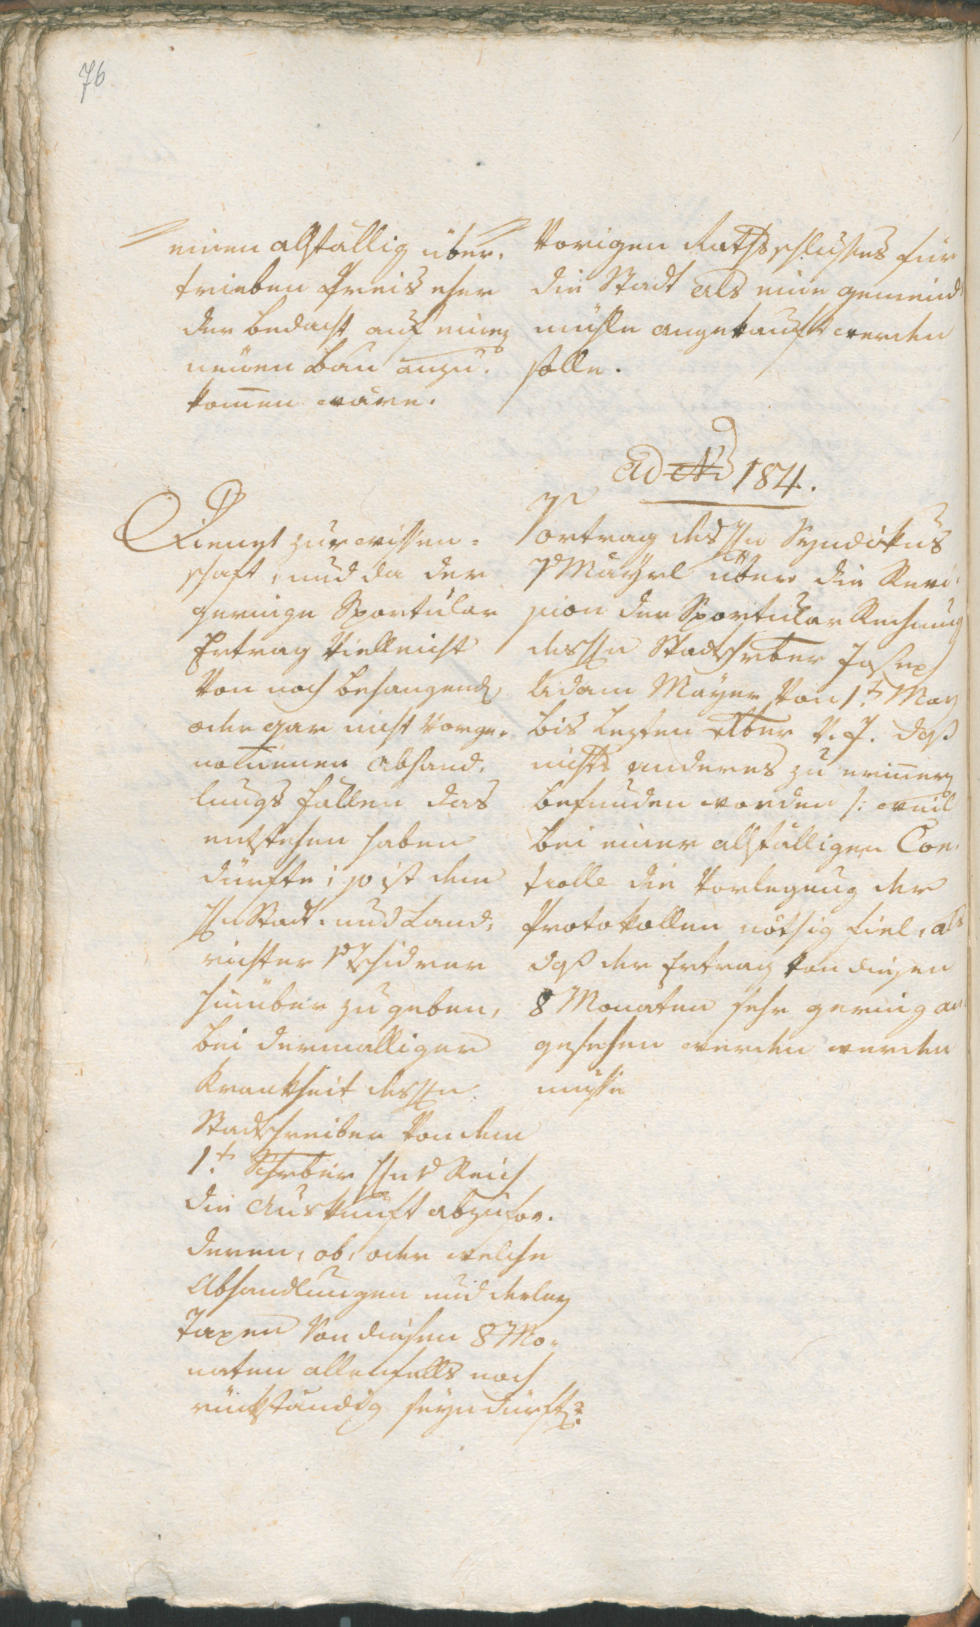 76
einen allfällig über¬
trieben Preis eher
der bedacht auf einen
neuen Bau anzu¬
kom̄en wäre.
Vorigen Rathsschlusses für
die Stadt als eine gemeind
mühle angekauft werden
solle.
Ad N 184.
Dienet zur wissen¬
schaft, und da der
geringe Sportular
Ertrag Vielleicht
Von noch behangenden
oder gar nicht Vorge¬
nom̄enen abhand¬
lungs fällen das
entstehen haben
dürfte; so ist dem
Hn Stadt- und Land¬
richter
hinüber zu geben,
bei dermalliger
Krankheit des Hn
Stadtschreiber Von dem
1t. Schrber Hn Reich
die Auskunft abzufor¬
deren, ob, oder welche
Abhandlungen und derley
Taxen Von diesen 8 Mo¬
naten allenfalls noch
rückständig seyn dürften?
Vortrag des Hn Syndikus
v Mayrl über die Revi¬
sion der Sportular Rechnung
des Hn Stadtschrber Joseph
Adam Mayer Von 1t. May
bis lezten Xber v. J. daß
nichts anderes zu erin̄ern
befunden worden /: weil
bei einer allfälligen Con¬
trolle die Vorlegung der
Protokollen nöthig fiel, als
daß der Ertrag Von diesen
8 Monaten sehr gering an
gesehen werden werden
müsse